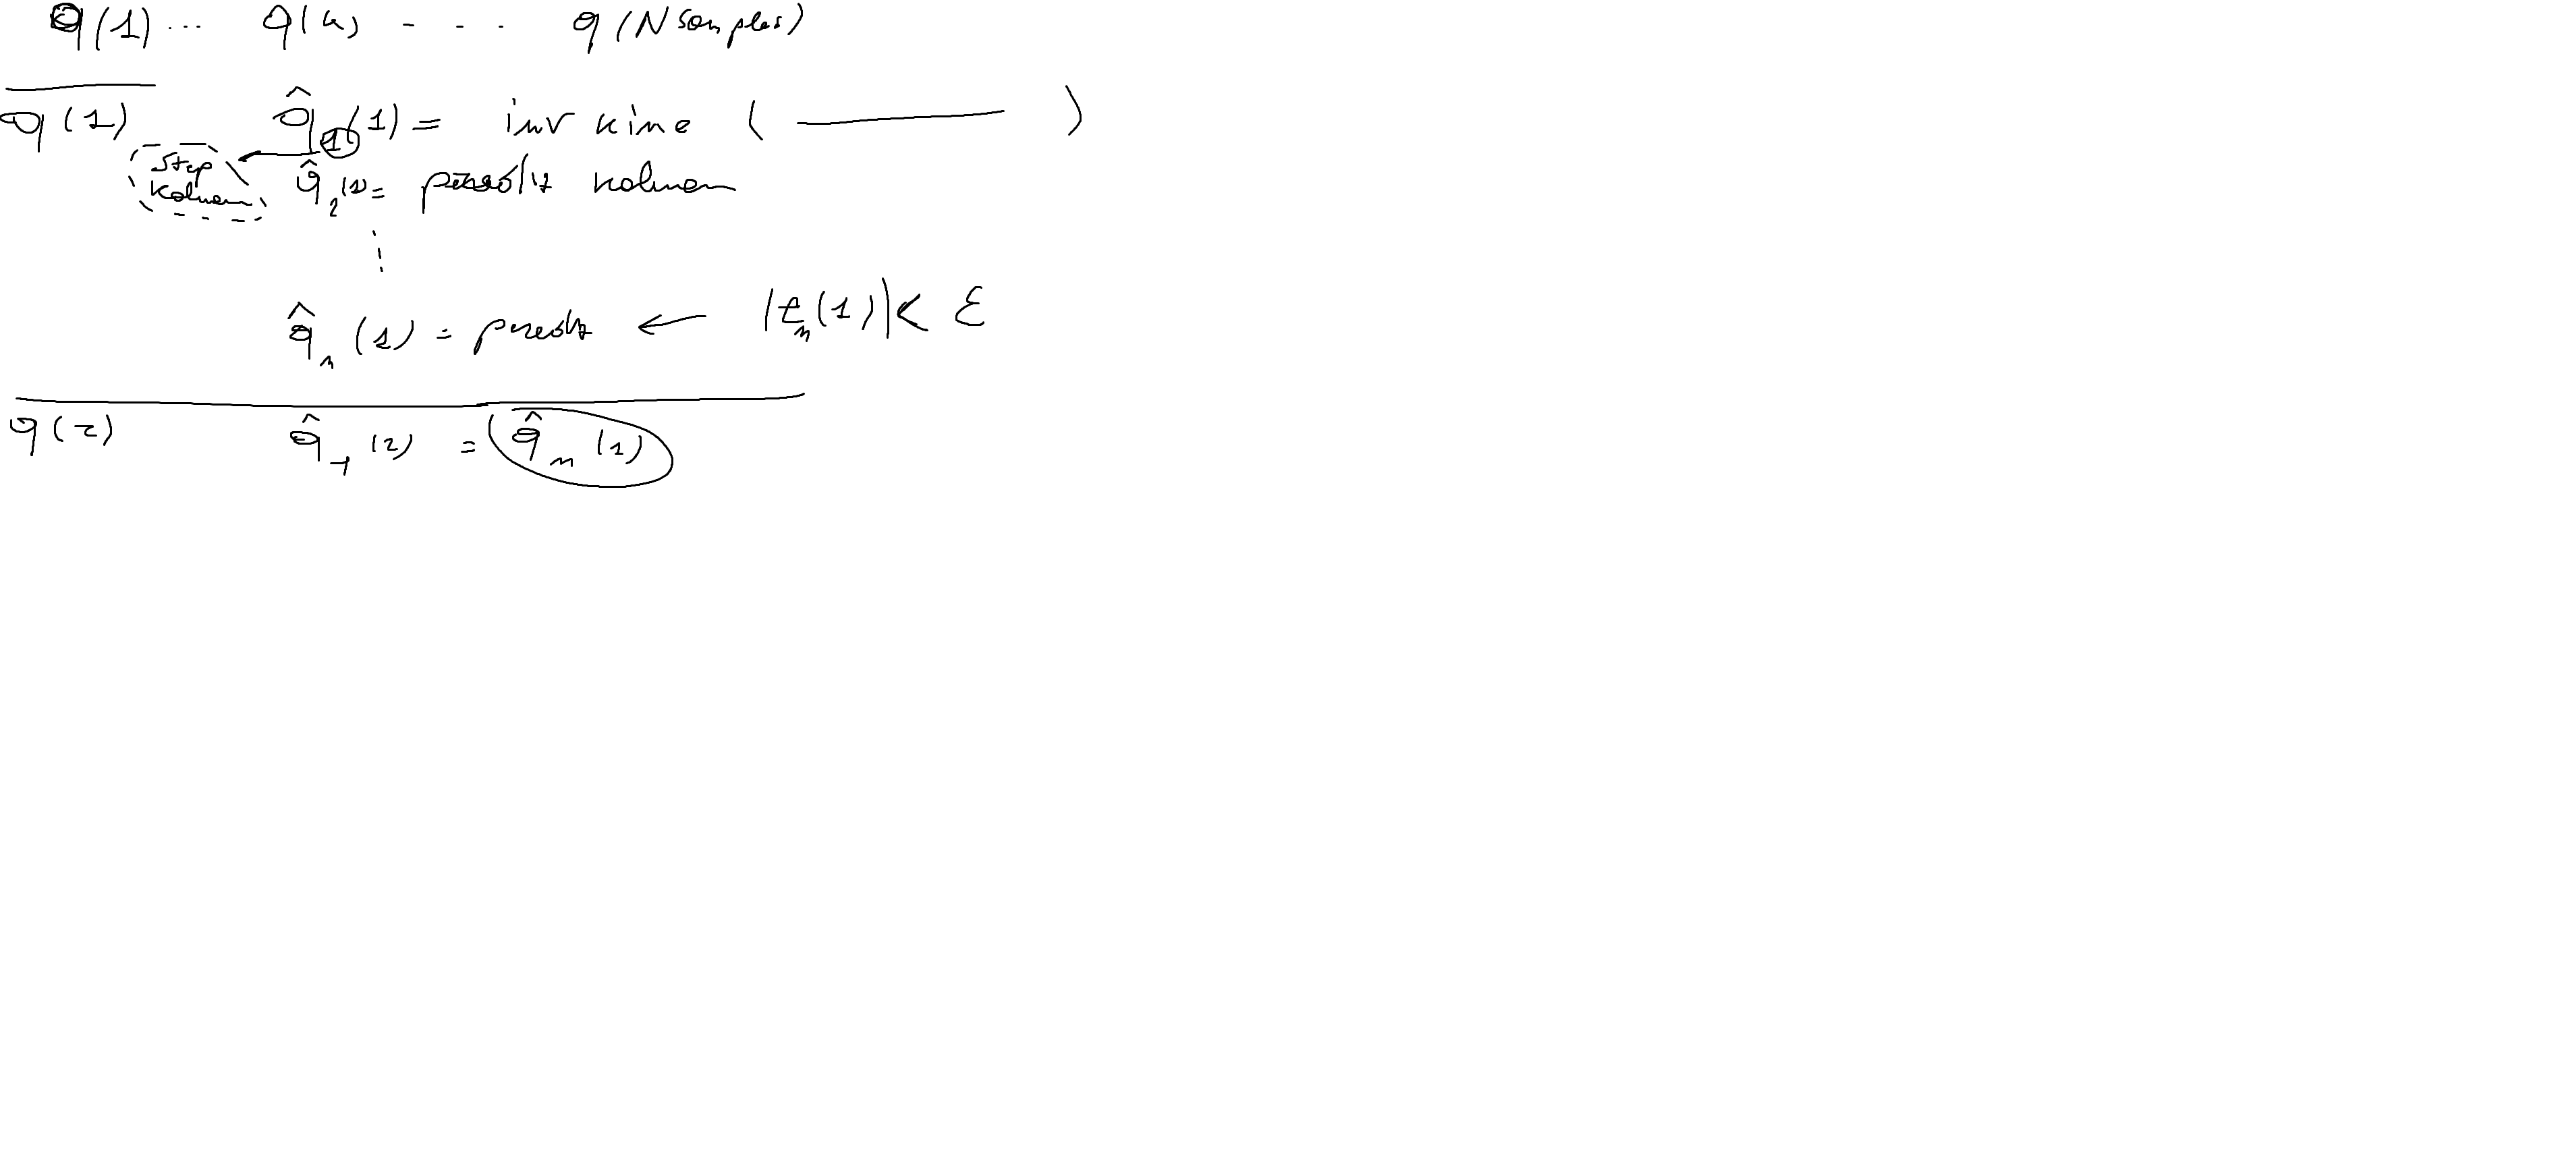 q(1) ... q(k) - - - q(Nsamples)
q(1) q̂₁(1) = inv kine ( ——— )
Step
Kalman q̂₂(1) = kalman
⋮
q̂ₙ(1) = ← |eₙ(1)| < ε
q(2) q̂₁(2) = q̂ₙ(1)